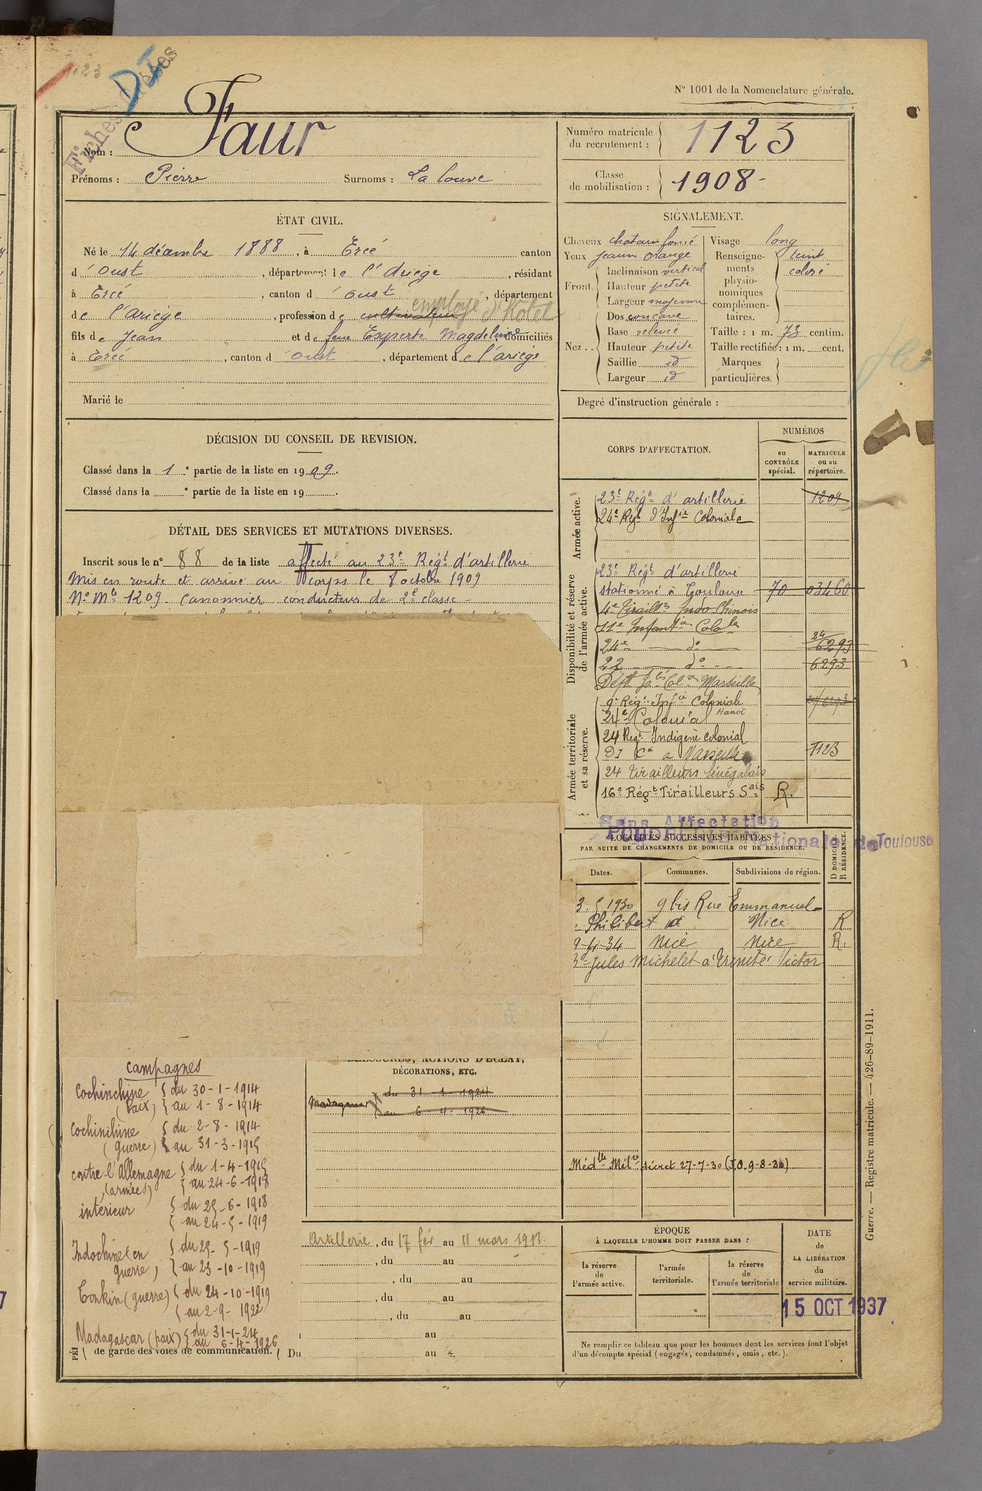 N° 1001 de la Nomenclature générale.
1123
Fiches
Nom : Faur
Prénoms : Pierre Surnoms : La louve
Numéro matricule du recrutement : 1123
Classe de mobilisation : 1908
ÉTAT CIVIL.
Né le 14 décembre 1888, à Ercé canton
d'Oust, département de l'Ariège, résidant
à Ercé, canton d'Oust, département
de l'ariège, profession de cultivateur employé d'Hôtel
fils de Jean et de feue Experte Magdeleine, domiciliés
à Ercé, canton d'Oust, département de l'ariège
Marié le
SIGNALEMENT.
Cheveux chatain foncé
Yeux jaune orangé
Front. Inclinaison vertical
Hauteur petite
Largeur moyenne
Nez. Dos concave
Base relevée
Hauteur petite
Saillie id
Largeur id
Visage long
Renseignements physionomiques complémentaires. teint coloré
Taille : 1 m. 73 centim.
Taille rectifiée : 1 m. cent.
Marques particulières.
Degré d'instruction générale :
DÉCISION DU CONSEIL DE REVISION.
Classé dans la 1e partie de la liste en 1909.
Classé dans la e partie de la liste en 19 .
DÉTAIL DES SERVICES ET MUTATIONS DIVERSES.
Inscrit sous le n° 88 de la liste affecté au 23e Régt d'artillerie
Mis en route et arrivé au corps le 8 octobre 1909
No Mle 1209. Canonnier conducteur de 2e classe
CORPS D'AFFECTATION.
NUMÉROS
au CONTRÔLE spécial.
MATRICULE ou au répertoire.
Armée active.
23e Régt d'artillerie 1209
24e Régt d'Infie Coloniale
Disponibilité et réserve de l'armée active.
23e Régt d'artillerie
stationné à Toulouse 70 03460
4e Tiraillrs Indo Chinois
11e Infantie Colole
24e do 24 6293
22 do 6293
Dépôt Iso Colx Marseille
Armée territoriale et sa réserve.
9e Régt Infie Coloniale Hanoï
24e Colonial
24 Régt Indigène Colonial
DI Cx à Marseille 1123
24 Tirailleurs Sénégalais
16e Régt Tirailleurs Sais R.
Sans Affectation
Nationale de Toulouse
LOCALITÉS SUCCESSIVES HABITÉES
PAR SUITE DE CHANGEMENTS DE DOMICILE OU DE RÉSIDENCE.
Dates. Communes. Subdivisions de région. D DOMICILE R RÉSIDENCE.
3.5.1930 9 bis Rue Emmanuel
Philibert Nice R
9-4-34 Nice Nice R.
Jules Michelet à Trinité Victor
campagnes
Cochinchine (Paix) du 30-1-1914
au 1-8-1914
Cochinchine (guerre) du 2-8-1914
au 31-3-1915
contre l'Allemagne (armées) du 1-4-1915
au 24-6-1918
intérieur du 25-6-1918
au 24-5-1919
Indochine (en guerre) du 25-5-1919
au 23-10-1919
Tonkin (guerre) du 24-10-1919
au 2-9-1922
Madagascar (paix) du 31-1-24
au 6-4-1926
de garde des voies de communication. Du au
BLESSURES, ACTIONS D'ÉCLAT,
DÉCORATIONS, ETC.
Madagascar du 31-1-1924
au 6-4-1926
Médlle Milre décret 27-7-30 (J.O. 9-8-30)
Artillerie, du 17 fév au 11 mars 1913.
, du au
, du au
, du au
, du au
au
ÉPOQUE
À LAQUELLE L'HOMME DOIT PASSER DANS :
la réserve de l'armée active.
l'armée territoriale.
la réserve de l'armée territoriale
DATE de LA LIBÉRATION du service militaire.
15 OCT 1937
Ne remplir ce tableau que pour les hommes dont les services font l'objet
d'un décompte spécial (engagés, condamnés, omis, etc.).
Guerre. — Registre matricule. — 426-89-1911.